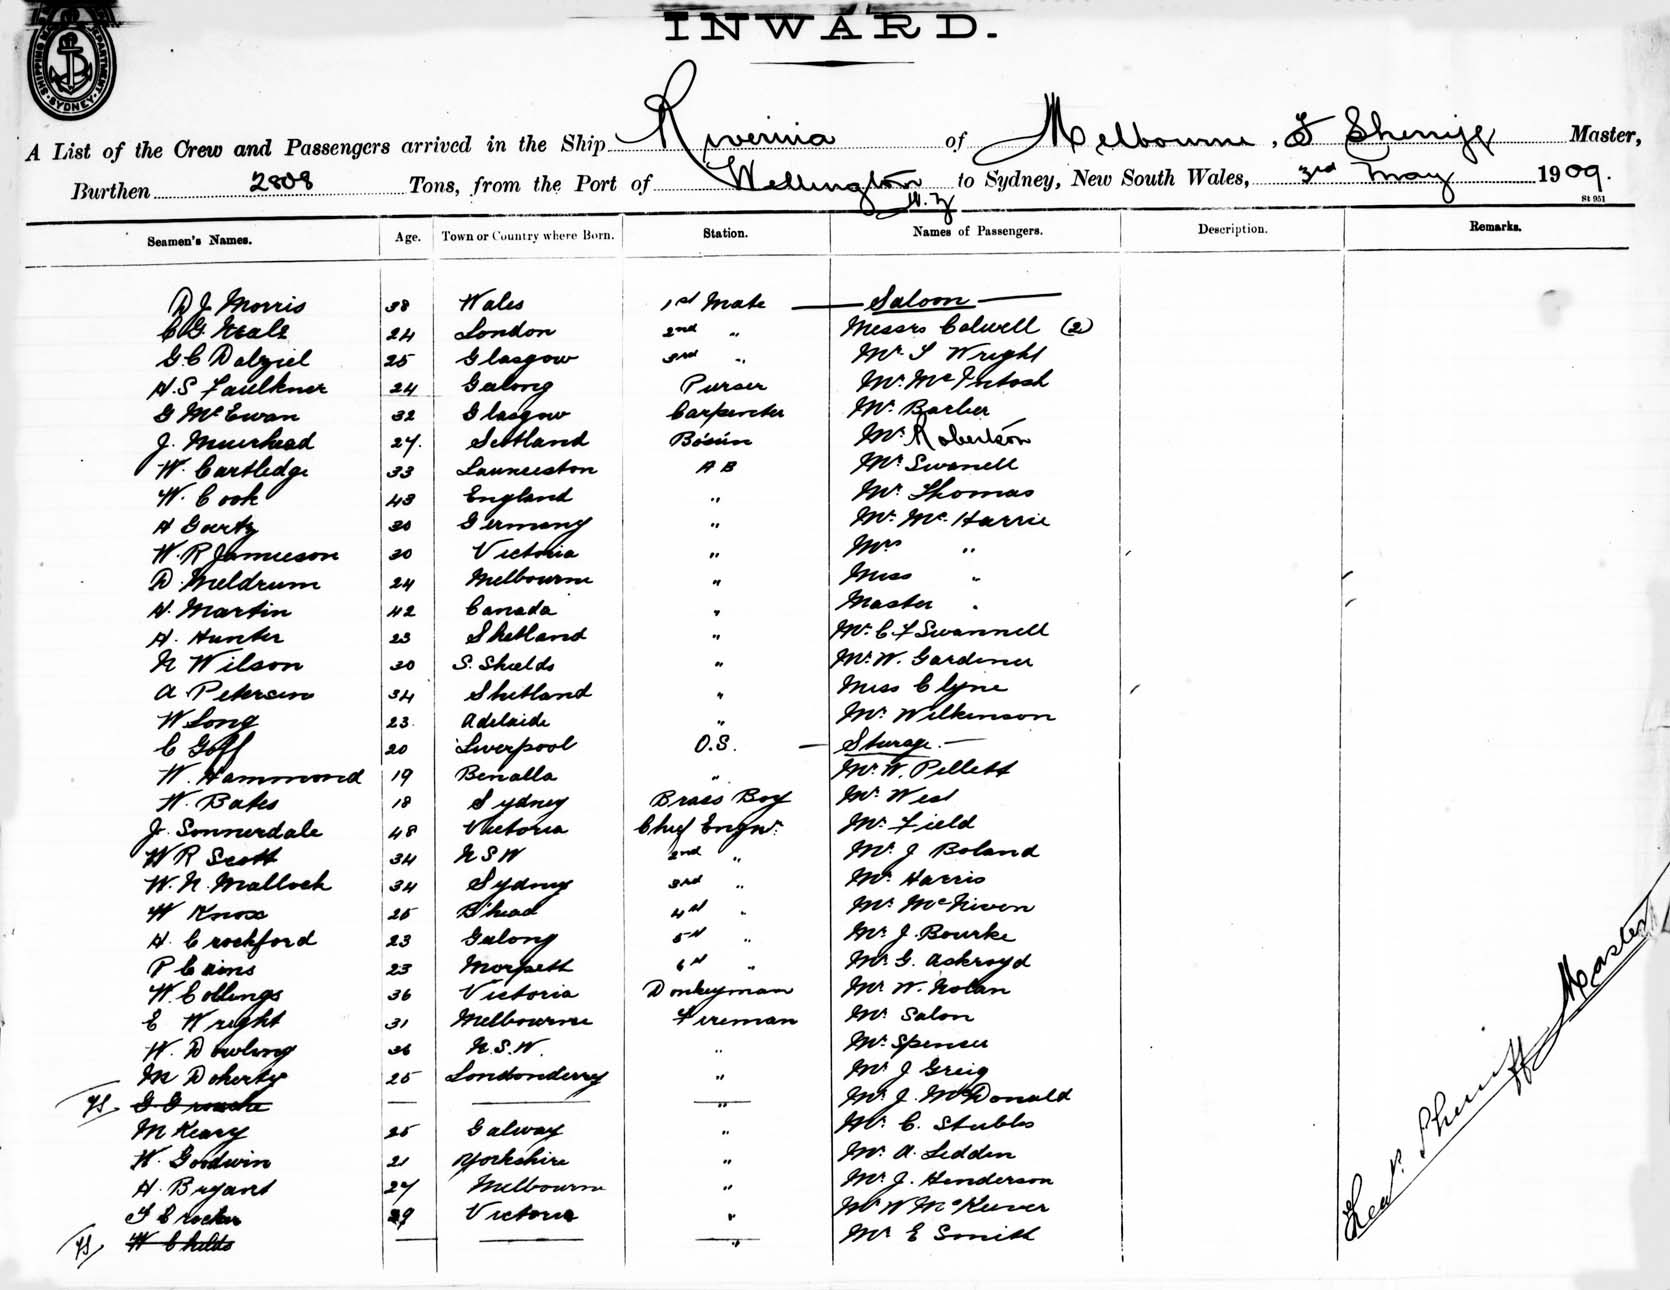 INWARD.
SHIPPING MASTER'S DEPARTMENT SYDNEY
A List of the Crew and Passengers arrived in the Ship Riverina of Melbourne, F Sherriff Master,
Burthen 2808 Tons, from the Port of Wellington N.Z to Sydney, New South Wales, 3rd May 1909.
St 951
Seamen's Names. Age. Town or Country where Born. Station. Names of Passengers. Description. Remarks.
D J Morris 38 Wales 1st Mate — Saloon —
C G Neale 24 London 2nd " Messrs Colwell (2)
G C Dalziel 25 Glasgow 3rd " Mr. S Wright
H. S Faulkner 24 Geelong Purser Mr. McIntosh
G McEwan 32 Glasgow Carpenter Mr. Barber
J. Muirhead 27. Scotland Bosun Mr. Robertson
W. Cartledge 33 Launceston A B Mr Swanell
W. Cook 43 England " Mr. Thomas
A Gartz 30 Germany " Mr. Mc Harrie
W. R Jamieson 30 Victoria " Mrs "
D. Meldrum 24 Melbourne " Miss "
H. Martin 42 Canada " Master "
A. Hunter 23 Shetland " Mr. C F Swannell
N Wilson 30 S. Shields " Mr. W. Gardiner
A. Petersen 34 Shetland " Miss Clyne
W Long 23 Adelaide " Mr. Wilkinson
C Goff 20 Liverpool O.S. — Sturage. —
W. Hammond 19 Benalla " Mr. W. Pellett
W. Bates 18 Sydney Brass Boy Mr. West
J. Sonnerdale 48 Victoria Chief Engnr. Mr. Field
W R Scott 34 N S W 2nd " Mr. J Boland
W. N. Malloch 34 Sydney 3rd " Mr Harris
W Knox 25 B'head 4th " Mr McNiven
A. Crockford 23 Geelong 5th " Mr J. Bourke
P Cains 23 Morpeth 6th " Mr G. Ackroyd
W. Collings 36 Victoria Donkeyman Mr W. Nolan
E Wright 31 Melbourne Fireman Mr Salon
W. Dowling 36 N.S.W. " Mr Spencer
M Doherty 25 Londonderry " Mr J Greig
G. — — " Mr J. McDonald
M Keary 25 Galway " Mr C. Stubbs
W. Goodwin 21 Yorkshire " Mr. A. Ledden
H. Bryant 27 Melbourne " Mr J. Henderson
T Crocker 29 Victoria " Mr W McKeever
W Childs — — " Mr E Smith
Fredk. Sherriff Master